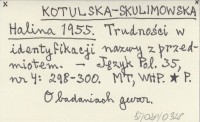 KOTULSKA-SKULIMOWSKA
Halina 1955. Trudności w
identyfikacji nazwy z przed-
miotem. — Język Pol. 35,
nr 4: 298-300. MT, WHP. ★ P.
O badaniach gwar.